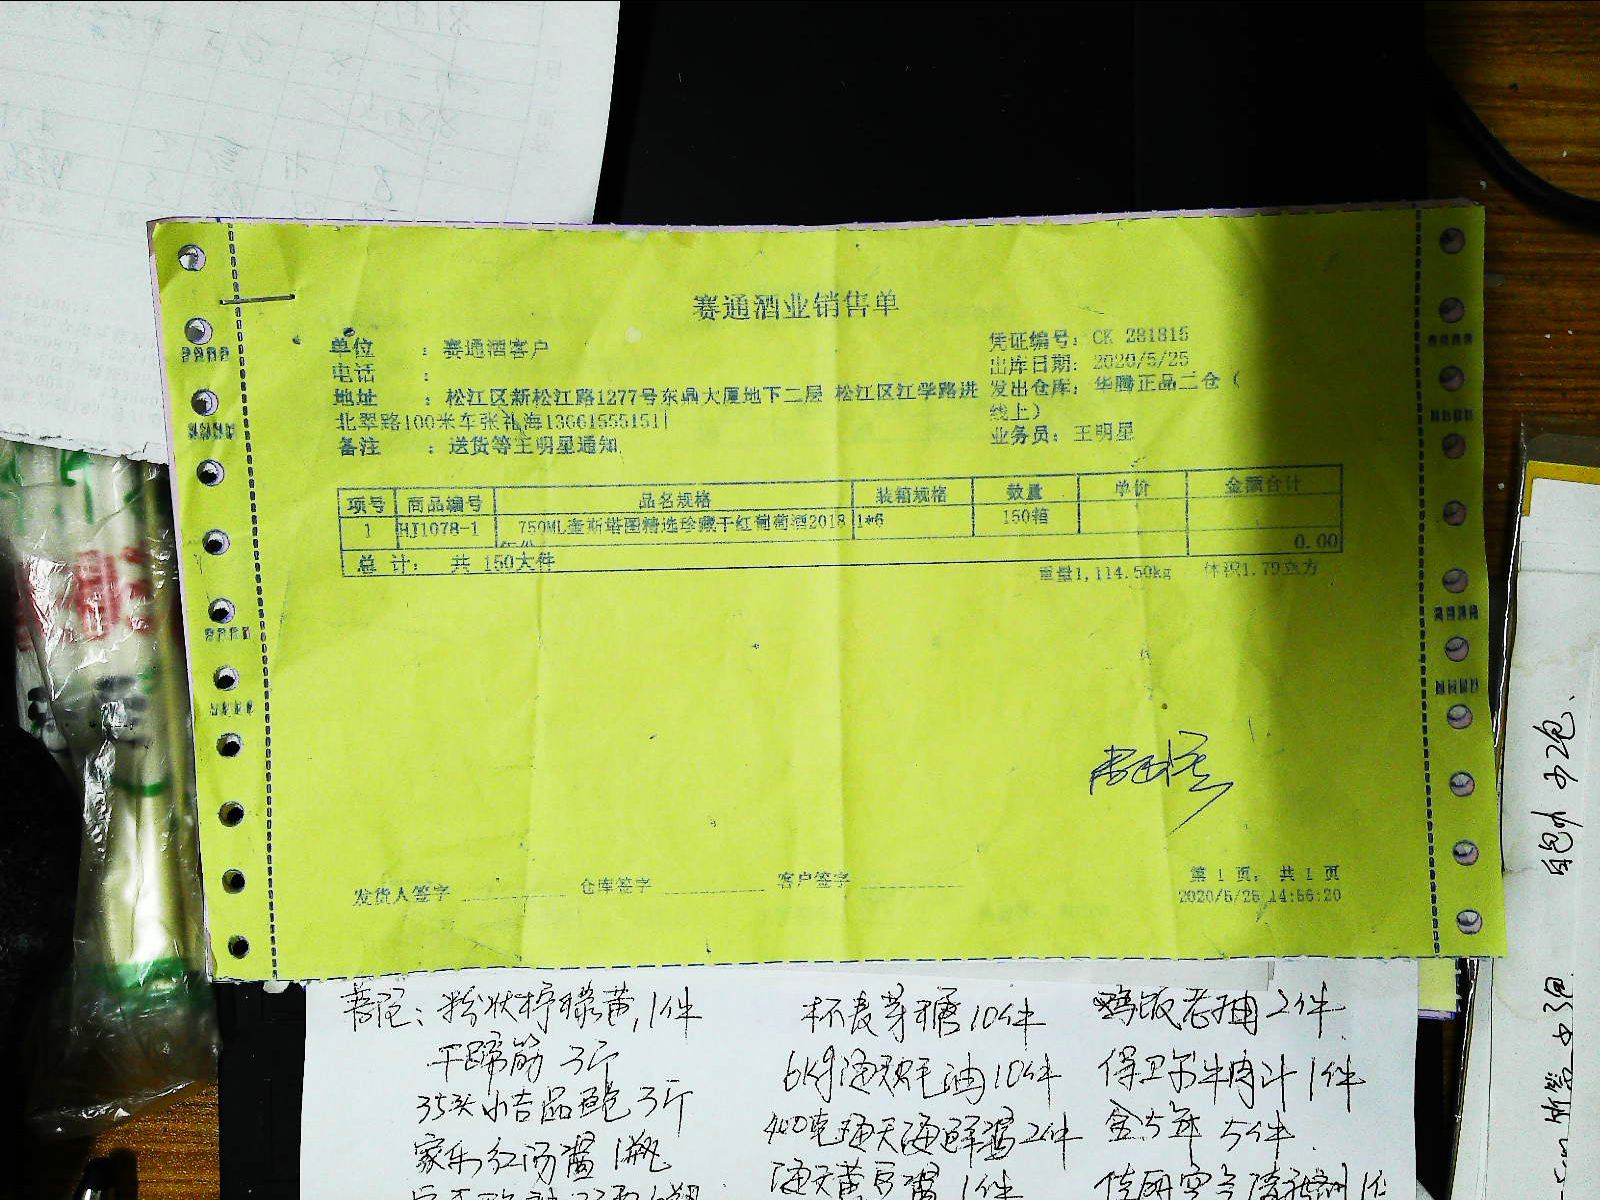 赛通酒业销售单
单位 : 赛通酒客户
凭证编号: CK 281815
电话 :
出库日期: 2020/5/25
地址 : 松江区新松江路1277号东鼎大厦地下二层 松江区江学路进
发出仓库: 华腾正品二仓(
北翠路100米车张礼海13661555151
线上)
备注 : 送货等王明星通知
业务员: 王明星
项号 商品编号 品名规格 装箱规格 数量 单价 金额合计
1 HJ1078-1 750ML奎斯塔图精选珍藏干红葡萄酒2018 1*6 150箱
0.00
总 计: 共 150大件
重量1,114.50kg 体积1.79立方
发货人签字 仓库签字 客户签字
第 1 页, 共 1 页
2020/5/25 14:56:20
粉状柠檬黄,1件 杯麦芽糖10件 鸡饭老抽2件
干蹄筋 3斤 6kg海天蚝油10件 保卫尔牛肉汁1件
35头小吉品鲍3斤 400克海天海鲜酱2件 金5年 5件
家乐红汤酱 1瓶 海天黄豆酱1件